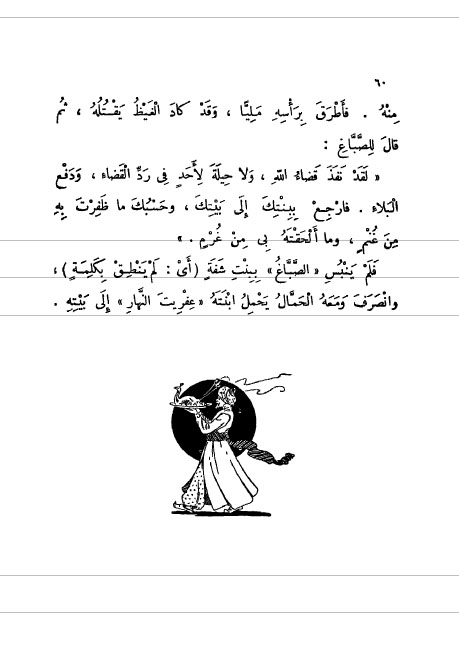 ٦٠
مِنْهُ . فَأَطْرَقَ بِرَأْسِهِ مَلِيًّا ، وَقَدْ كادَ الْغَيْظُ يَقْتُلُهُ ، ثُمَّ
قالَ لِلصَّبَّاغِ :
« لَقَدْ نَفَذَ قَضاءُ اللهِ ، وَلا حِيلَةَ لِأَحَدٍ فِى رَدِّ الْقَضاء ، وَدَفْعِ
الْبَلاءِ . فارْجِعْ بِبِنْتِكَ إِلَى بَيْتِكَ ، وحَسْبُكَ ما ظَفِرْتَ بِهِ
مِنَ غُنْمٍ ، وما أَلْحَقْتَهُ بِى مِنْ غُرْمٍ . »
فَلَمْ يَنْبُسِ « الصَّبَّاغُ » بِبِنْتِ شَفَةٍ ( أَىْ : لَمْ يَنْطِقْ بِكَلِمَةٍ ) ،
وانْصَرَفَ وَمَعَهُ الْحَمَّالُ يَحْمِلُ ابْنَتَهُ « عِفْرِيتَ النَّهارِ » إِلَى بَيْتِهِ .